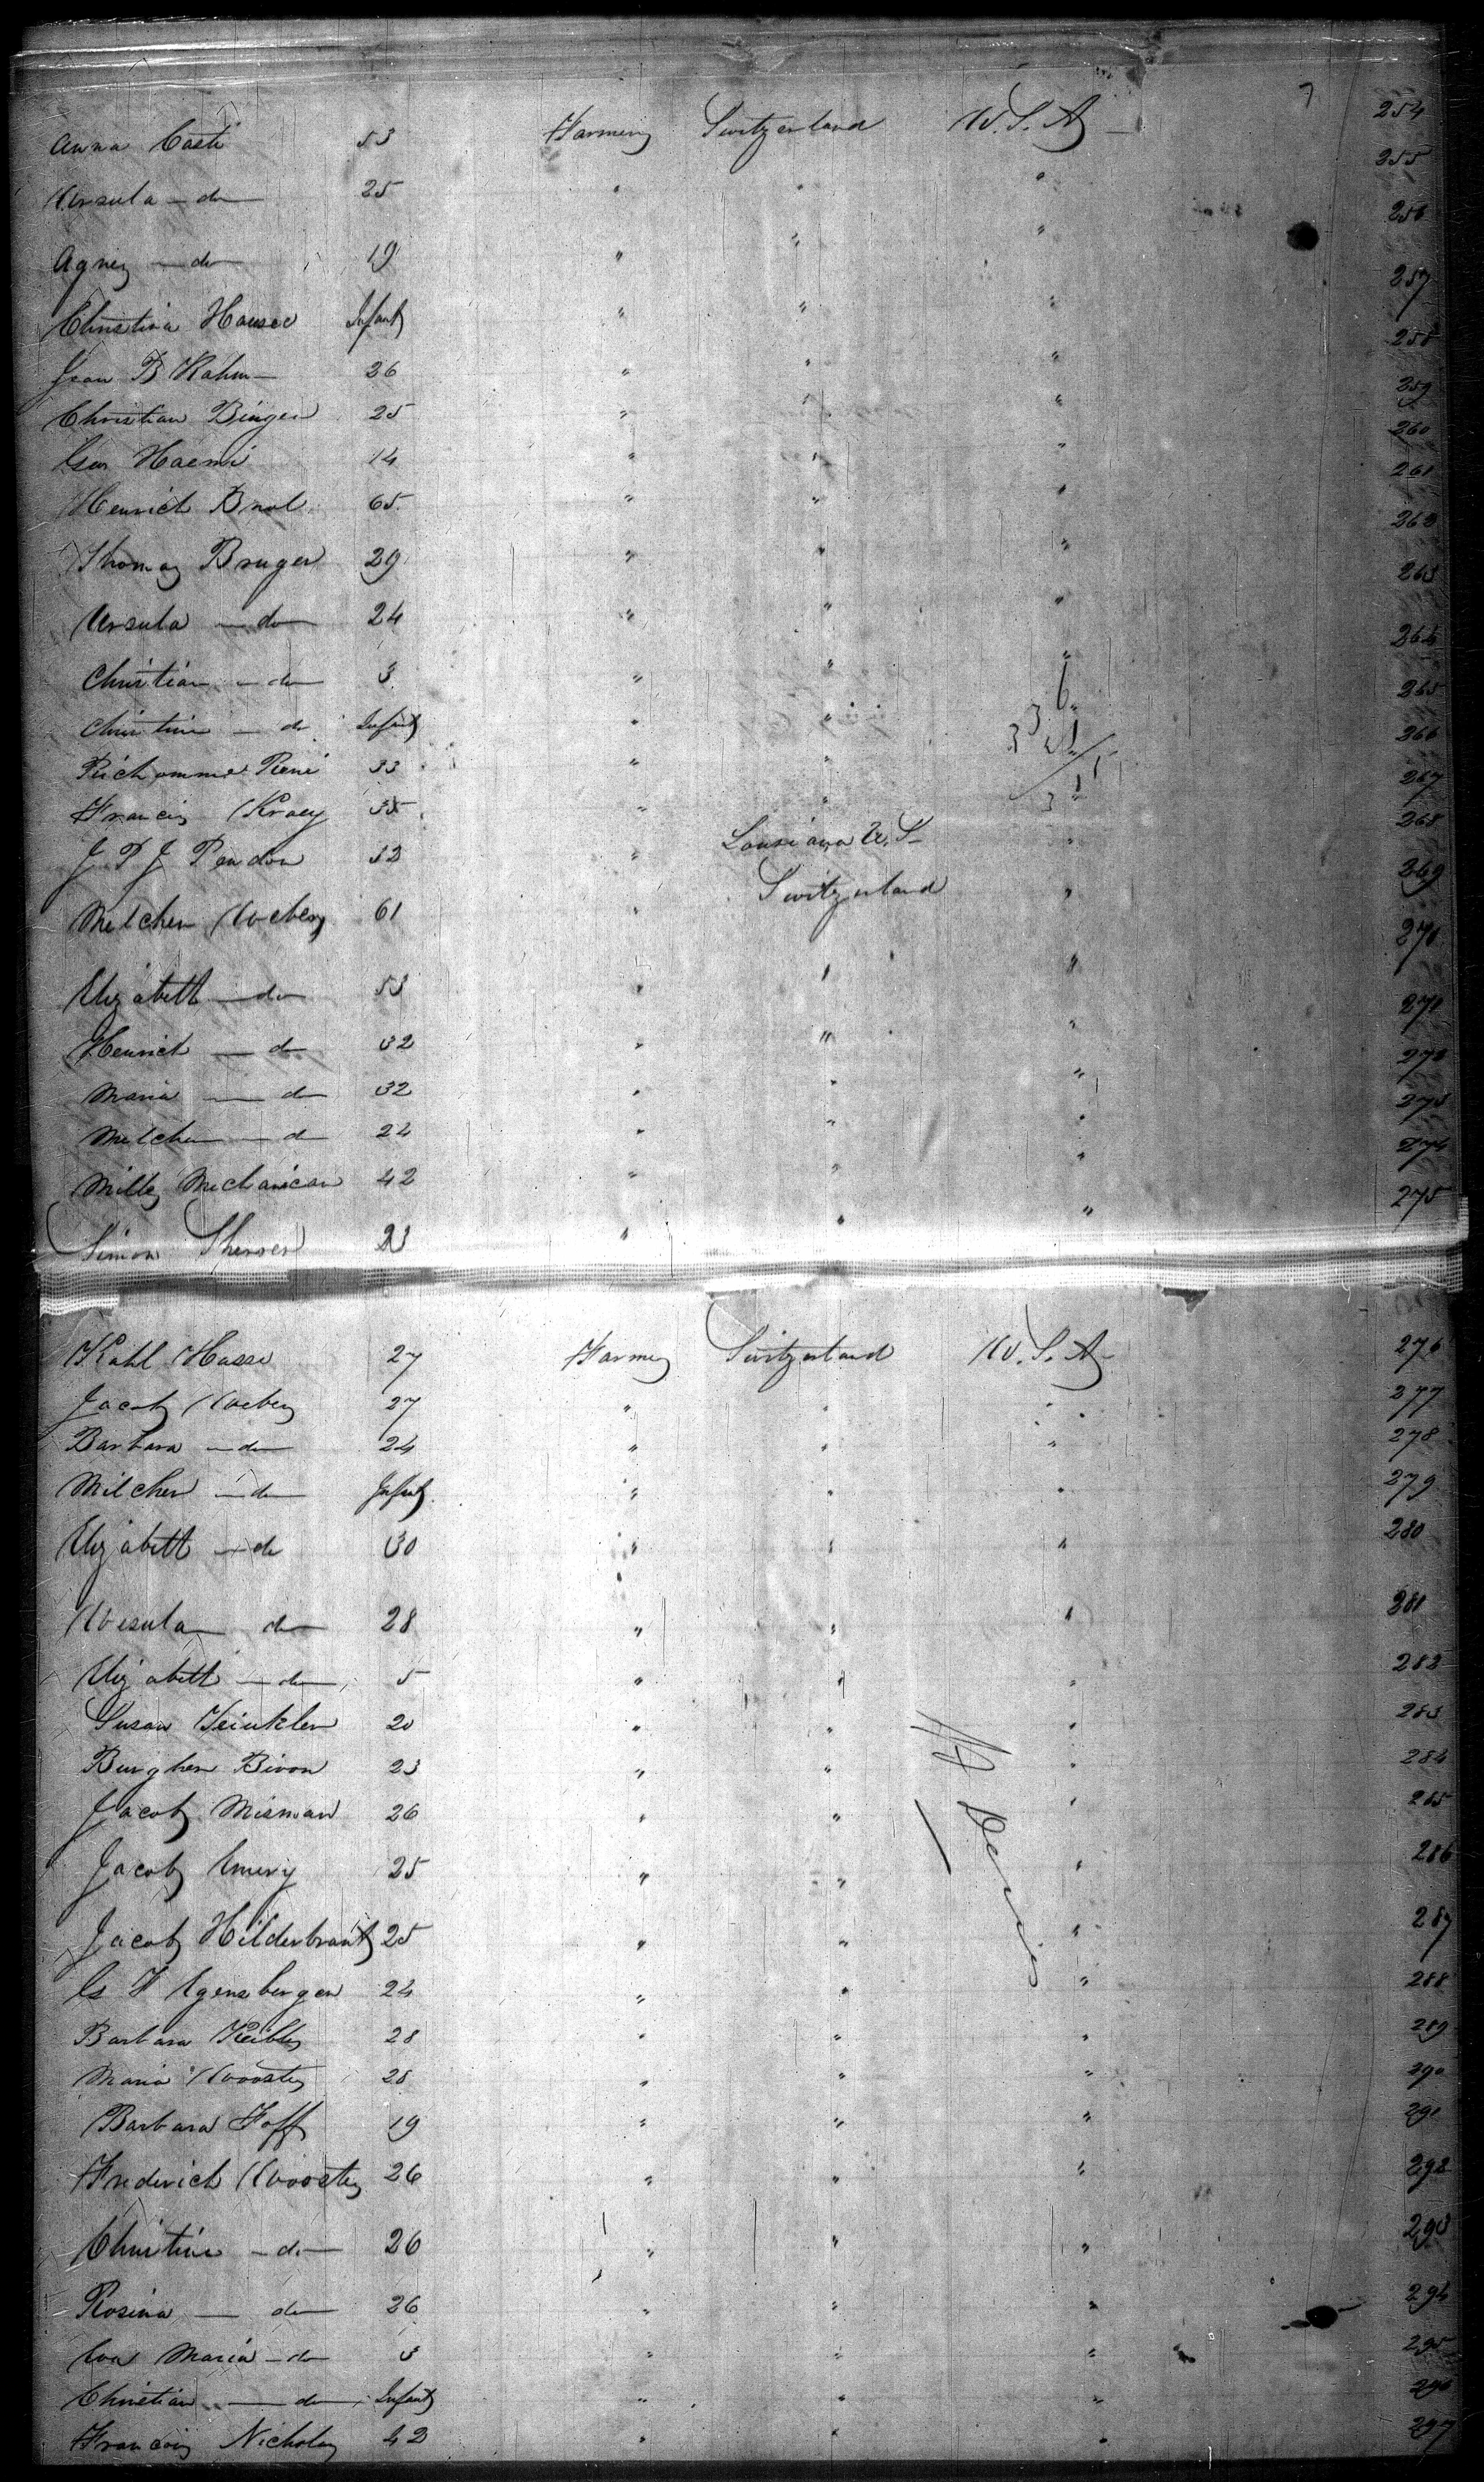 Anna Casti 53 Farmers Switzerland U.S.A 254
Ursula — do — 25 " " " 255
Agnes — do — 19 " " " 256
Christina Hauser Infant " " " 257
Jean B Kahm — 26 " " " 258
Christian Binger 25 " " " 259
Geo Haemi 14 " " " 260
Henrich Bnol 65 " " " 261
Thomas Bruger 29 " " " 262
Ursula — do — 24 " " " 263
Christian — do — 3 " " " 264
Christine — do Infant " " " 265
Richomme René 33 " " " 266
Francis Kraey 35 " " " 267
J P J Pendon 32 " Lousiana U.S — " 268
Melcher Weber 61 " Switzerland " 269
Elizabett — do — 53 " " " 270
Henrich — do 32 " " " 271
Maria — do 32 " " " 272
Melcher — do 24 " " " 273
Mills Mechanican 42 " " " 274
Simon Sherrer 23 " " " 275
Kahl Hasse 27 Farmers Switzerland U.S.A — 276
Jacob Weber 27 " " " 277
Barbara — do — 24 " " " 278
Milcher — do — Infant " " " 279
Elizabett — do 30 " " " 280
Wesula — do — 28 " " " 281
Elizabett — do — 5 " " " 282
Susan Keinkler 20 " " " 283
Burgher Bivon 23 " " " 284
Jacob Misman 26 " " " 285
Jacob Emery 25 " " " 286
Jacob Hilderbrant 25 " " " 287
G F Egensberger 24 " " " 288
Barbara Keibler 28 " " " 289
Maria Wooster 28 " " " 290
Barbara Foff 19 " " " 291
Frederich Wooster 26 " " " 292
Christine — do — 26 " " " 293
Rosina — do — 26 " " " 294
Eva Maria — do 3 " " " 295
Christian — do — Infant " " " 296
Francois Nicholas 42 " " " 297